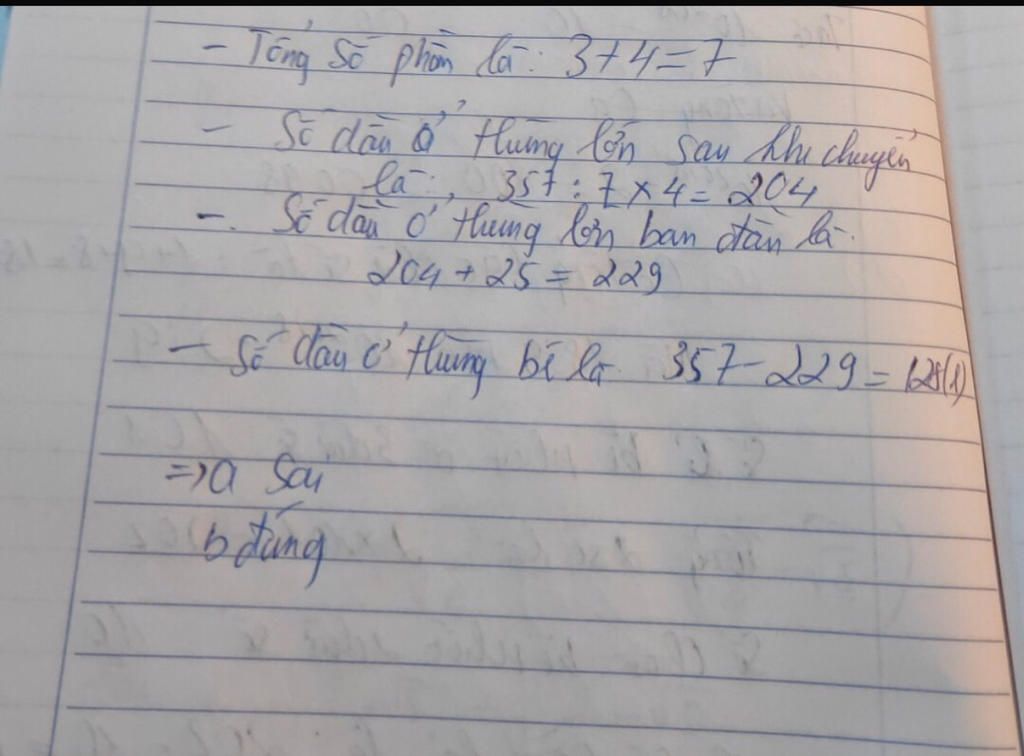 - Tổng số phần là: 3+4=7
- Số dầu ở thùng lớn sau khi chuyển
là: 357 : 7 x 4 = 204
- Số dầu ở thùng lớn ban đầu là.
204 + 25 = 229
- Số dầu ở thùng bé là 357 - 229 = 128(l)
=> a sai
b đúng